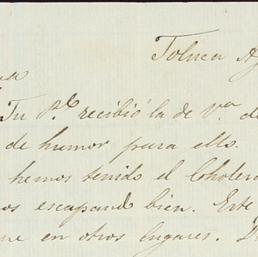 Toluca Ag
sa
Tu P.e recibió la de V.a de
de humor para ello.
hemos tenido el Cholera
os escapando bien. Este
ne en otros lugares. D